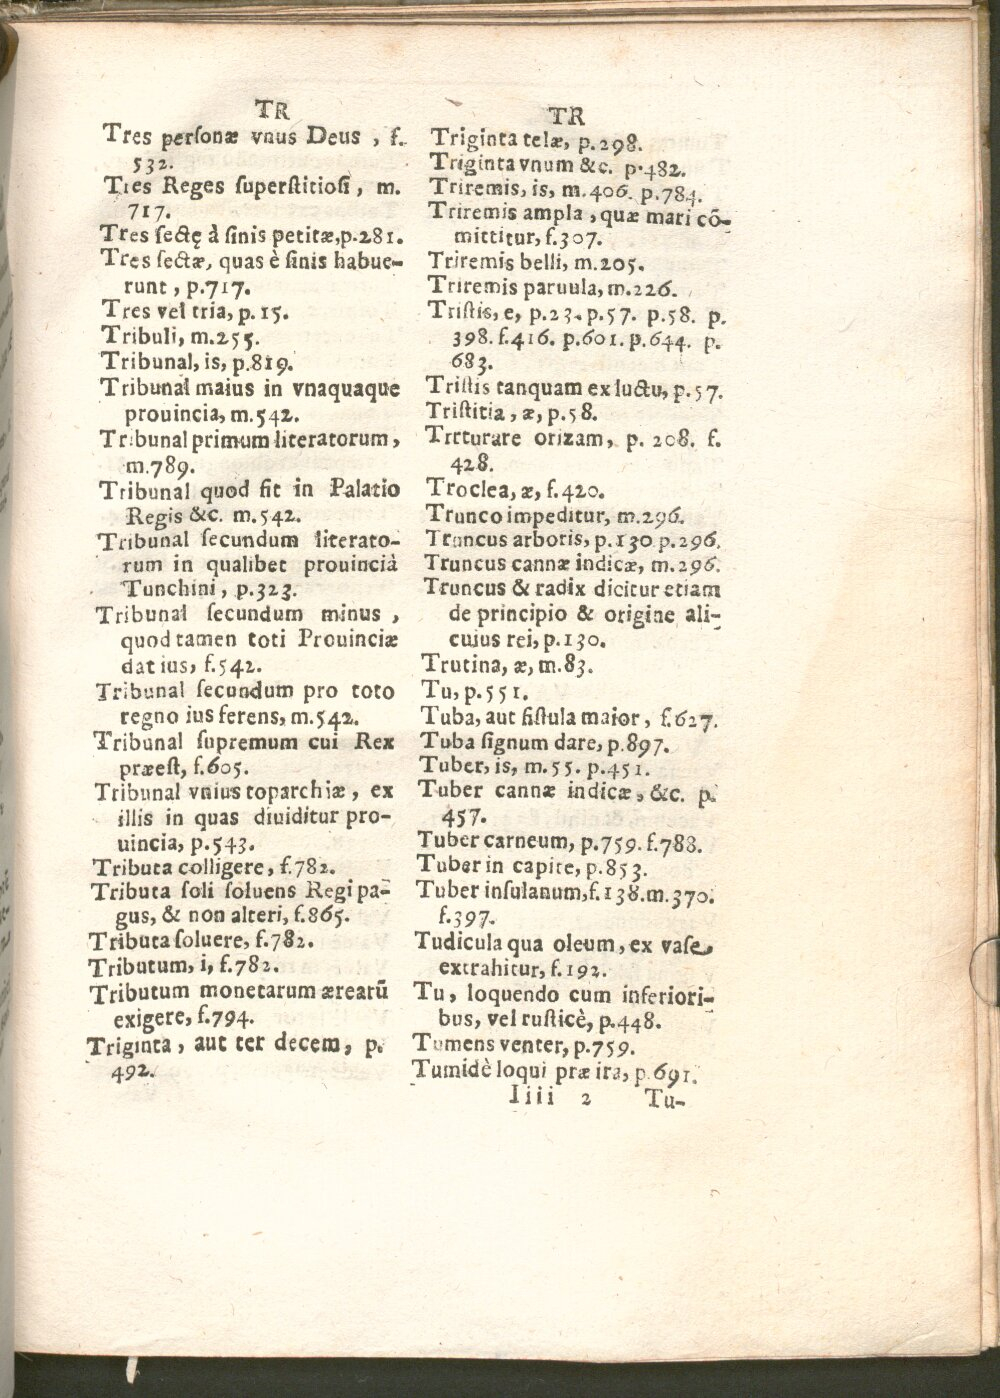 TR
Tres perſonæ vnus Deus, f.
532.
Tres Reges ſuperſtitioſi, m.
717.
Tres ſectę à ſinis petitæ, p.281.
Tres ſectæ, quas è ſinis habue-
runt, p.717.
Tres vel tria, p.15.
Tribuli, m.255.
Tribunal, is, p.819.
Tribunal maius in vnaquaque
prouincia, m.542.
Tribunal primum literatorum,
m.789.
Tribunal quod fit in Palatio
Regis &c. m.542.
Tribunal ſecundum literato-
rum in qualibet prouincià
Tunchini, p.323.
Tribunal ſecundum minus,
quod tamen toti Prouinciæ
dat ius, f.542.
Tribunal ſecundum pro toto
regno ius ferens, m.542.
Tribunal ſupremum cui Rex
præeſt, f.605.
Tribunal vnius toparchiæ, ex
illis in quas diuiditur pro-
uincia, p.543.
Tributa colligere, f.782.
Tributa ſoli ſoluens Regi pa-
gus, & non alteri, f.865.
Tributa ſoluere, f.782.
Tributum, i, f.782.
Tributum monetarum ærearū
exigere, f.794.
Triginta, aut ter decem, p.
492.
TR
Triginta telæ, p.298.
Triginta vnum &c. p.482.
Triremis, is, m.406. p.784.
Triremis ampla, quæ mari cō-
mittitur, f.307.
Triremis belli, m.205.
Triremis paruula, m.226.
Triſtis, e, p.23. p.57. p.58. p.
398. f.416. p.601. p.644. p.
683.
Triſtis tanquam ex luctu, p.57.
Triſtitia, æ, p.58.
Triturare orizam, p. 208. f.
428.
Troclea, æ, f.420.
Trunco impeditur, m.296.
Truncus arboris, p.130 p.296.
Truncus cannæ indicæ, m.296.
Truncus & radix dicitur etiam
de principio & origine ali-
cuius rei, p.130.
Trutina, æ, m.83.
Tu, p.551.
Tuba, aut fiſtula maior, f.627.
Tuba ſignum dare, p.897.
Tuber, is, m.55. p.451.
Tuber cannæ indicæ, &c. p.
457.
Tuber carneum, p.759. f.788.
Tuber in capite, p.853.
Tuber inſulanum, f.138.m.370.
f.397.
Tudicula qua oleum, ex vaſe
extrahitur, f.192.
Tu, loquendo cum inferiori-
bus, vel ruſticè, p.448.
Tumens venter, p.759.
Tumidè loqui præ ira, p.691.
Iiii 2 Tu-